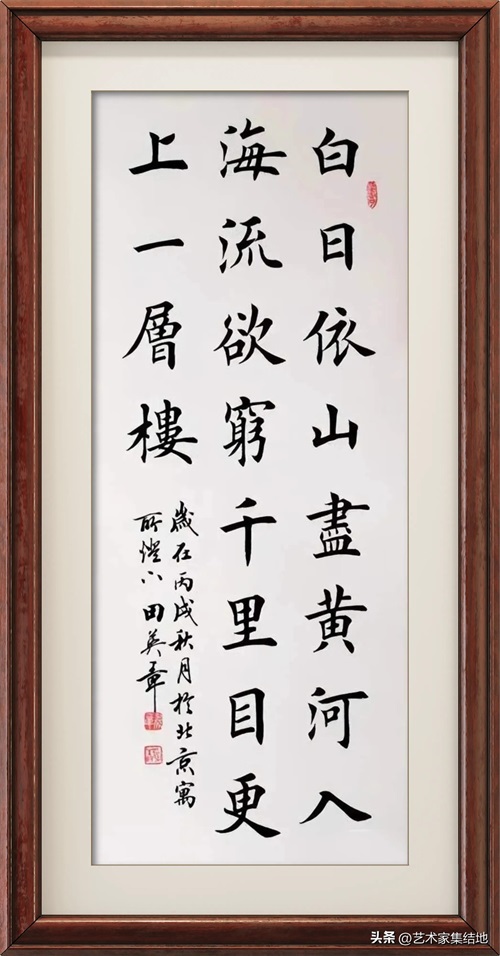 白日依山盡黄河入
海流欲窮千里目更
上一層樓
歲在丙戌秋月於北京寓
所燈下田英章
头条@艺术家集结地